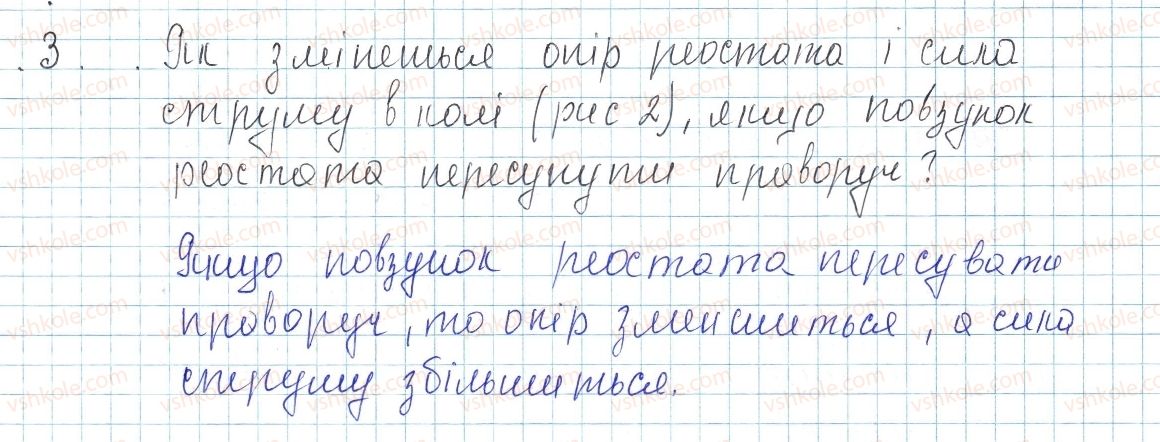 3. Як зміниться опір реостата і сила
струму в колі (рис 2), якщо повзунок
реостата пересунути праворуч?
Якщо повзунок реостата пересувати
праворуч, то опір зменшиться, а сила
струму збільшиться.